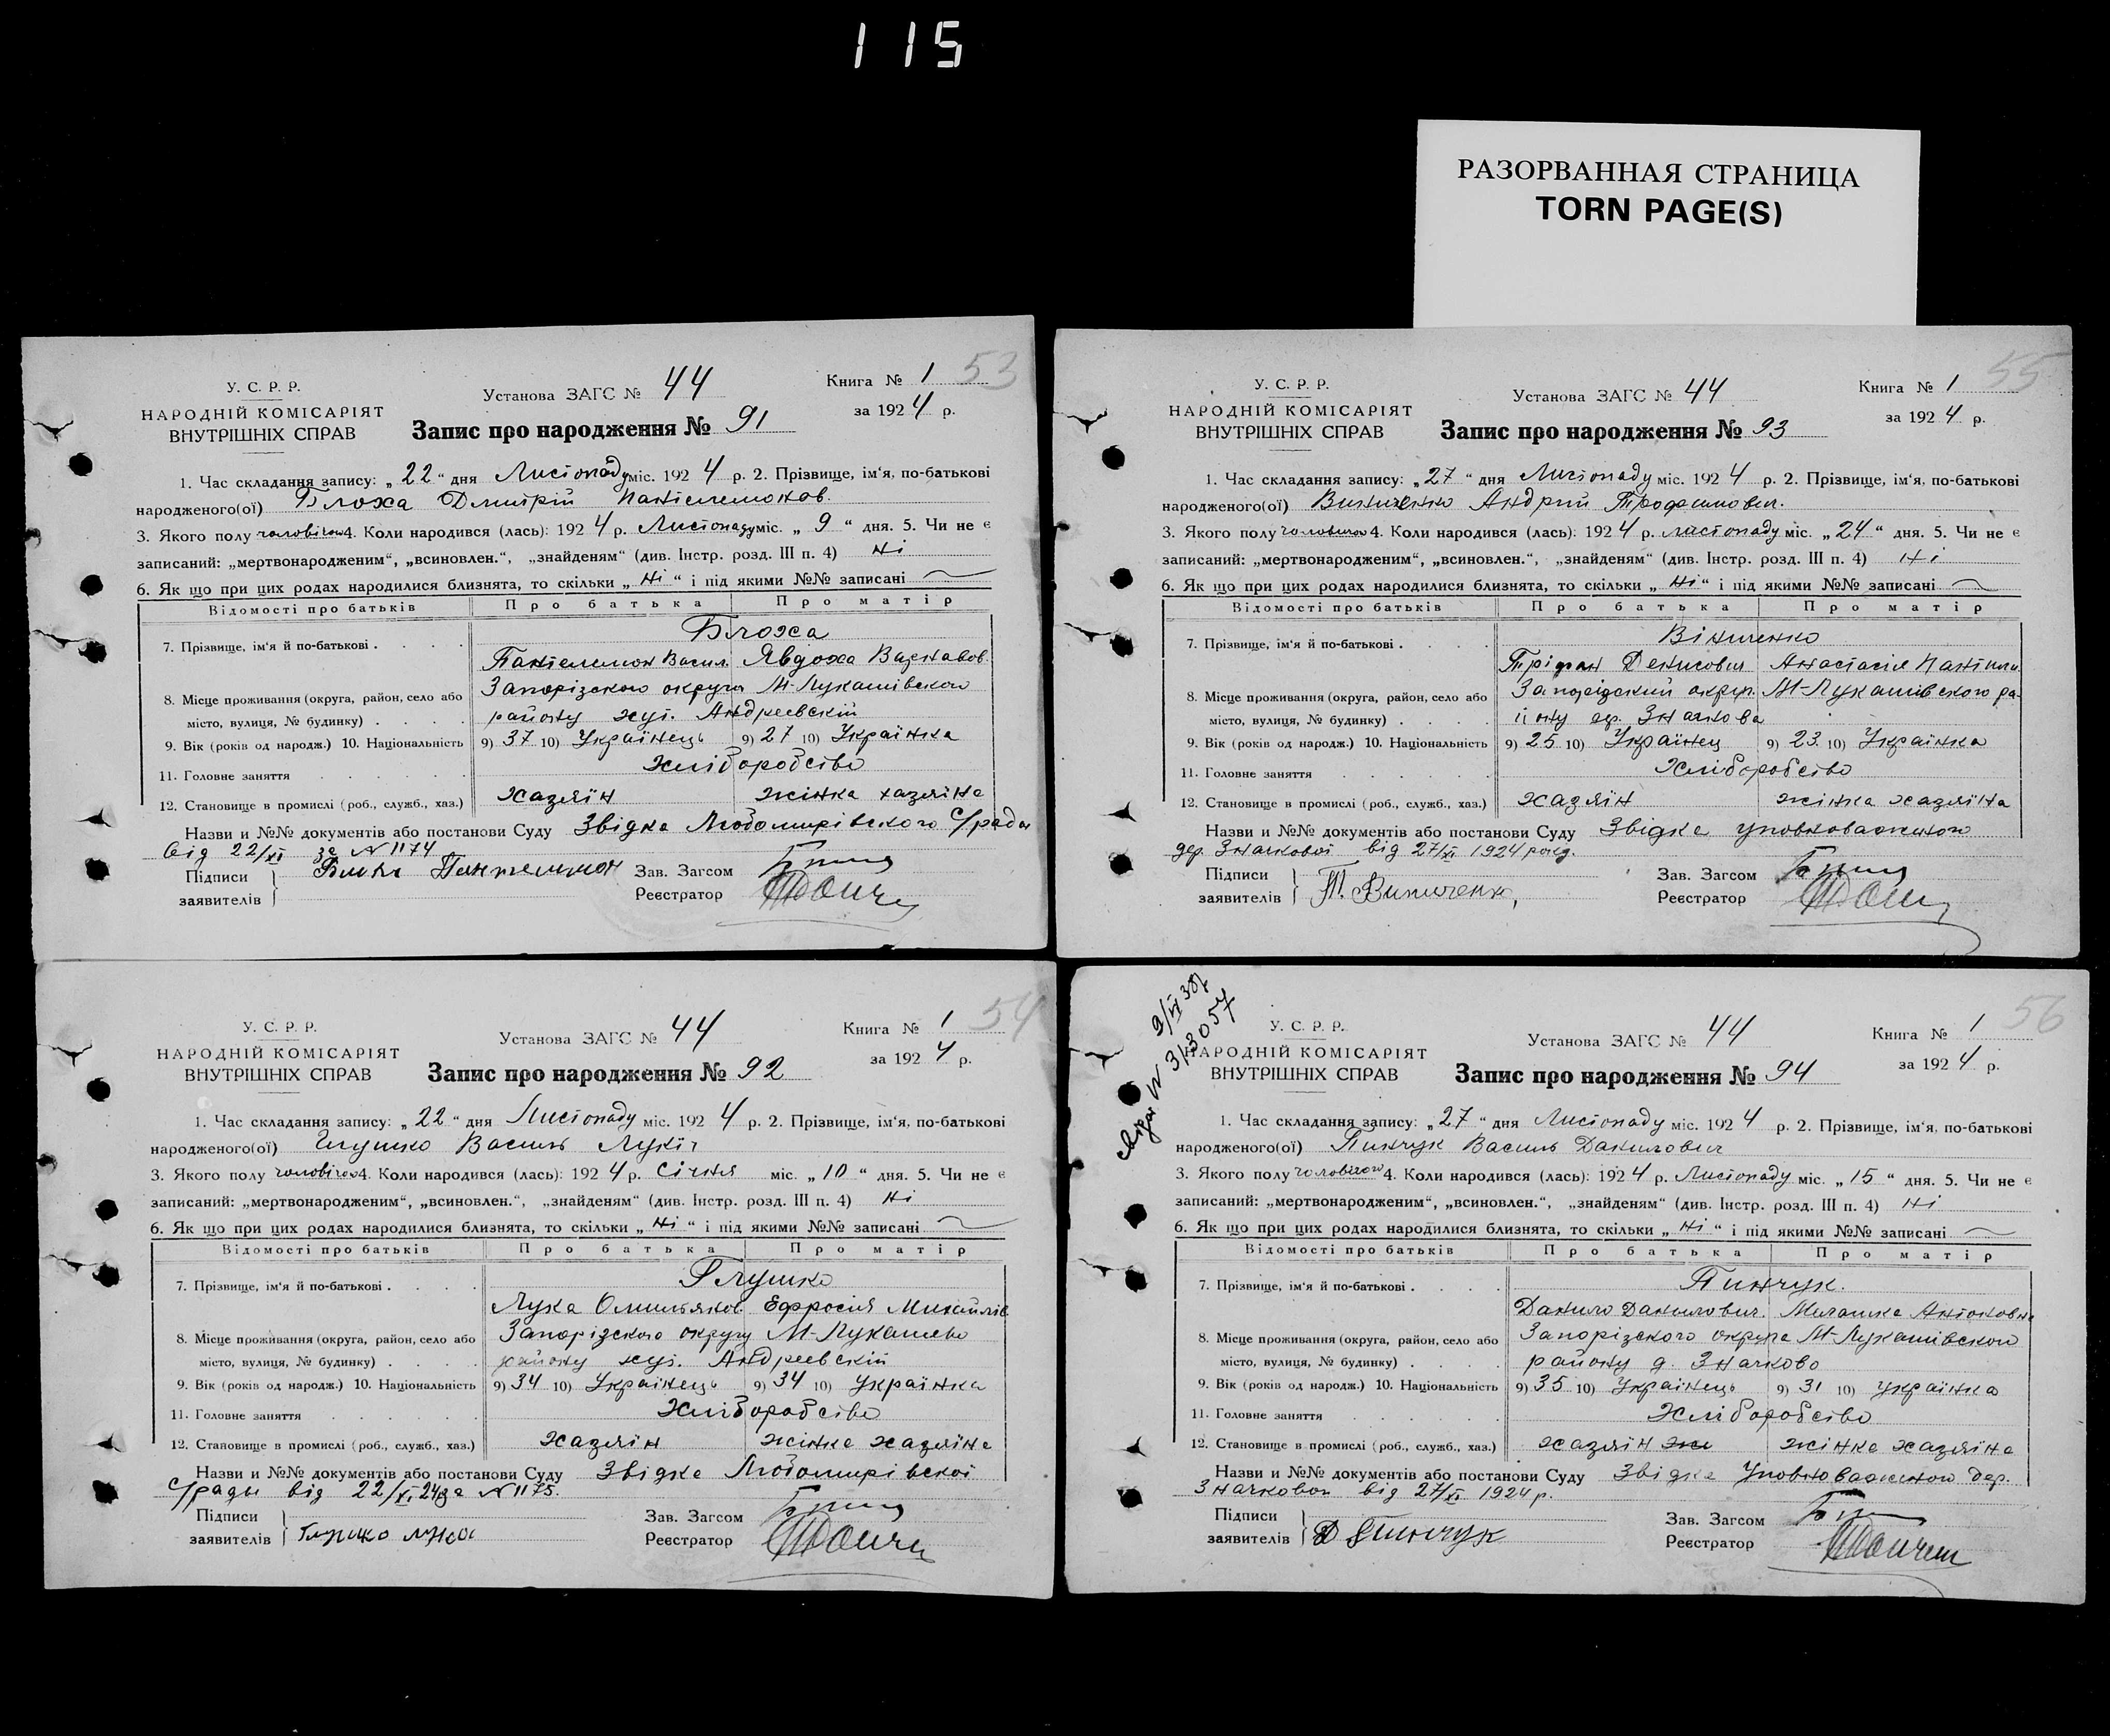 115
РАЗОРВАННАЯ СТРАНИЦА
TORN PAGE(S)
53
У. С. Р. Р.
НАРОДНІЙ КОМІСАРІЯТ
ВНУТРІШНІХ СПРАВ
Установа ЗАГС № 44
Книга № 1
за 1924 р.
Запис про народження № 91
1. Час складання запису: „22“ дня Листопаду міс. 1924 р. 2. Прізвище, ім‘я, по-батькові
народженого(ої) Блоха Дмитрій Пантелемонов.
3. Якого полу чоловічого 4. Коли народився (лась): 1924 р. Листопаду міс. „9“ дня. 5. Чи не є
записаний: „мертвонародженим“, „всиновлен.“, „знайденям“ (див. Інстр. розд. III п. 4) Ні
6. Як що при цих родах народилися близнята, то скільки „Ні“ і під якими №№ записані
Відомості про батьків Про батька Про матір
7. Прізвище, ім‘я й по-батькові . Блоха
Пантелемон Васил. Явдоха
8. Місце проживання (округа, район, село або Запорізского округу М-Лукашівского
місто, вулиця, № будинку) . району хут. Андреевскій
9. Вік (років од народж.) 10. Національність 9) 37 10) Українець 9) 27 10) Українка
11. Головне заняття Хліборобство
12. Становище в промислі (роб., служб., хаз.) хазяїн жінка хазяїна
Назви и №№ документів або постанови Суду Звідка Любомирівского С/ради
від 22/XI за N 1174
Підписи Пантелимон Зав. Загсом
заявителів Реєстратор
55
У. С. Р. Р.
НАРОДНІЙ КОМІСАРІЯТ
ВНУТРІШНІХ СПРАВ
Установа ЗАГС № 44
Книга № 1
за 1924 р.
Запис про народження № 93
1. Час складання запису: „27“ дня Листопаду міс. 1924 р. 2. Прізвище, ім‘я, по-батькові
народженого(ої) Виниченко Андрій Трофимович.
3. Якого полу чоловічого 4. Коли народився (лась): 1924 р. листопаду міс. „24“ дня. 5. Чи не є
записаний: „мертвонародженим“, „всиновлен.“, „знайденям“ (див. Інстр. розд. III п. 4) Ні
6. Як що при цих родах народилися близнята, то скільки „Ні“ і під якими №№ записані
Відомості про батьків Про батька Про матір
7. Прізвище, ім‘я й по-батькові . Віниченко
Денисович Анастасія
8. Місце проживання (округа, район, село або Запорізский округ. М-Лукашівского ра-
місто, вулиця, № будинку) . йону дер. Значкова
9. Вік (років од народж.) 10. Національність 9) 25 10) Українец 9) 23 10) Українка
11. Головне заняття Хліборобство
12. Становище в промислі (роб., служб., хаз.) хазяїн жінка хазяїна
Назви и №№ документів або постанови Суду Звідка уповноваженого
дер. Значковоі від 27/XI 1924 року.
Підписи Т. Виниченко, Зав. Загсом
заявителів Реєстратор
54
У. С. Р. Р.
НАРОДНІЙ КОМІСАРІЯТ
ВНУТРІШНІХ СПРАВ
Установа ЗАГС № 44
Книга № 1
за 1924 р.
Запис про народження № 92
1. Час складання запису: „22“ дня Листопаду міс. 1924 р. 2. Прізвище, ім‘я, по-батькові
народженого(ої) Глушко Василь Лукіч
3. Якого полу чоловічого 4. Коли народився (лась): 1924 р. Січня міс. „10“ дня. 5. Чи не є
записаний: „мертвонародженим“, „всиновлен.“, „знайденям“ (див. Інстр. розд. III п. 4) Ні
6. Як що при цих родах народилися близнята, то скільки „Ні“ і під якими №№ записані
Відомості про батьків Про батька Про матір
7. Прізвище, ім‘я й по-батькові . Глушко
Лука Омильянов. Ефросія Михайлів
8. Місце проживання (округа, район, село або Запорізского округу М-Лукашево
місто, вулиця, № будинку) . району хут. Андреевскій
9. Вік (років од народж.) 10. Національність 9) 34 10) Українець 9) 34 10) Українка
11. Головне заняття Хліборобство
12. Становище в промислі (роб., служб., хаз.) хазяїн жінка хазяїна
Назви и №№ документів або постанови Суду Звідка Любомирівскоі
С/ради від 22/XI 24 за N 1175.
Підписи Зав. Загсом
заявителів Глушко Лука Реєстратор
56
9/VI 38
N 313057
У. С. Р. Р.
НАРОДНІЙ КОМІСАРІЯТ
ВНУТРІШНІХ СПРАВ
Установа ЗАГС № 44
Книга № 1
за 1924 р.
Запис про народження № 94
1. Час складання запису: „27“ дня Листопаду міс. 1924 р. 2. Прізвище, ім‘я, по-батькові
народженого(ої) Пинчук Василь Данилович
3. Якого полу чоловічого 4. Коли народився (лась): 1924 р. Листопаду міс. „15“ дня. 5. Чи не є
записаний: „мертвонародженим“, „всиновлен.“, „знайденям“ (див. Інстр. розд. III п. 4) Ні
6. Як що при цих родах народилися близнята, то скільки „Ні“ і під якими №№ записані
Відомості про батьків Про батька Про матір
7. Прізвище, ім‘я й по-батькові . Пинчук.
Данило Данилович. Мелашка Антоновна
8. Місце проживання (округа, район, село або Запорізского округа М-Лукашівского
місто, вулиця, № будинку) . району д. Значково
9. Вік (років од народж.) 10. Національність 9) 35 10) Українець 9) 31 10) українка
11. Головне заняття Хліборобство
12. Становище в промислі (роб., служб., хаз.) хазяїн жінка хазяїна
Назви и №№ документів або постанови Суду Звідка Уповноваженого дер.
Значковои від 27/XI 1924 р.
Підписи Зав. Загсом
заявителів Д Пинчук Реєстратор